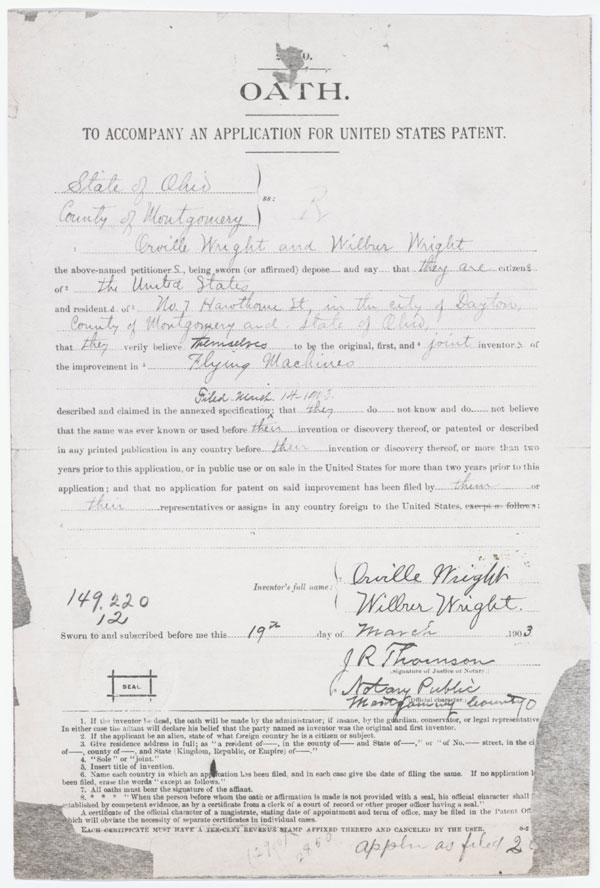 OATH.
TO ACCOMPANY AN APPLICATION FOR UNITED STATES PATENT.
State of Ohio
ss:
County of Montgomery
Orville Wright and Wilbur Wright
the above-named petitioner s, being sworn (or affirmed) depose and say that they are citizens
of the United States
and resident of No. 7 Hawthorne St, in the city of Dayton,
County of Montgomery and State of Ohio,
that they verily believe themselves to be the original, first, and joint inventors of
the improvement in Flying Machines
Filed March 14-1903.
described and claimed in the annexed specification; that they do not know and do not believe
that the same was ever known or used before their invention or discovery thereof, or patented or described
in any printed publication in any country before their invention or discovery thereof, or more than two
years prior to this application, or in public use or on sale in the United States for more than two years prior to this
application; and that no application for patent on said improvement has been filed by them or
their representatives or assigns in any country foreign to the United States, except as follows:
Inventor's full name:
Orville Wright
Wilbur Wright.
149,220
12
Sworn to and subscribed before me this 19th day of March 1903
J R Thomson
(Signature of Justice or Notary)
SEAL
Notary Public
(Official character)
Montgomery County O
1. If the inventor be dead, the oath will be made by the administrator; if insane, by the guardian, conservator, or legal representative
In either case the affiant will declare his belief that the party named as inventor was the original and first inventor.
2. If the applicant be an alien, state of what foreign country he is a citizen or subject.
3. Give residence address in full; as "a resident of —, in the county of — and State of —," or "of No. — street, in the ci
of —, county of —, and State (Kingdom, Republic, or Empire) of —."
4. "Sole" or "joint."
5. Insert title of invention.
6. Name each country in which an application has been filed, and in each case give the date of filing the same. If no application
been filed, erase the words "except as follows."
7. All oaths must bear the signature of the affiant.
8. * * * "When the person before whom the oath or affirmation is made is not provided with a seal, his official character shall
established by competent evidence, as by a certificate from a clerk of a court of record or other proper officer having a seal."
A certificate of the official character of a magistrate, stating date of appointment and term of office, may be filed in the Patent Off
which will obviate the necessity of separate certificates in individual cases.
EACH CERTIFICATE MUST HAVE A TEN-CENT REVENUE STAMP AFFIXED THERETO AND CANCELED BY THE USER.
appln as filed